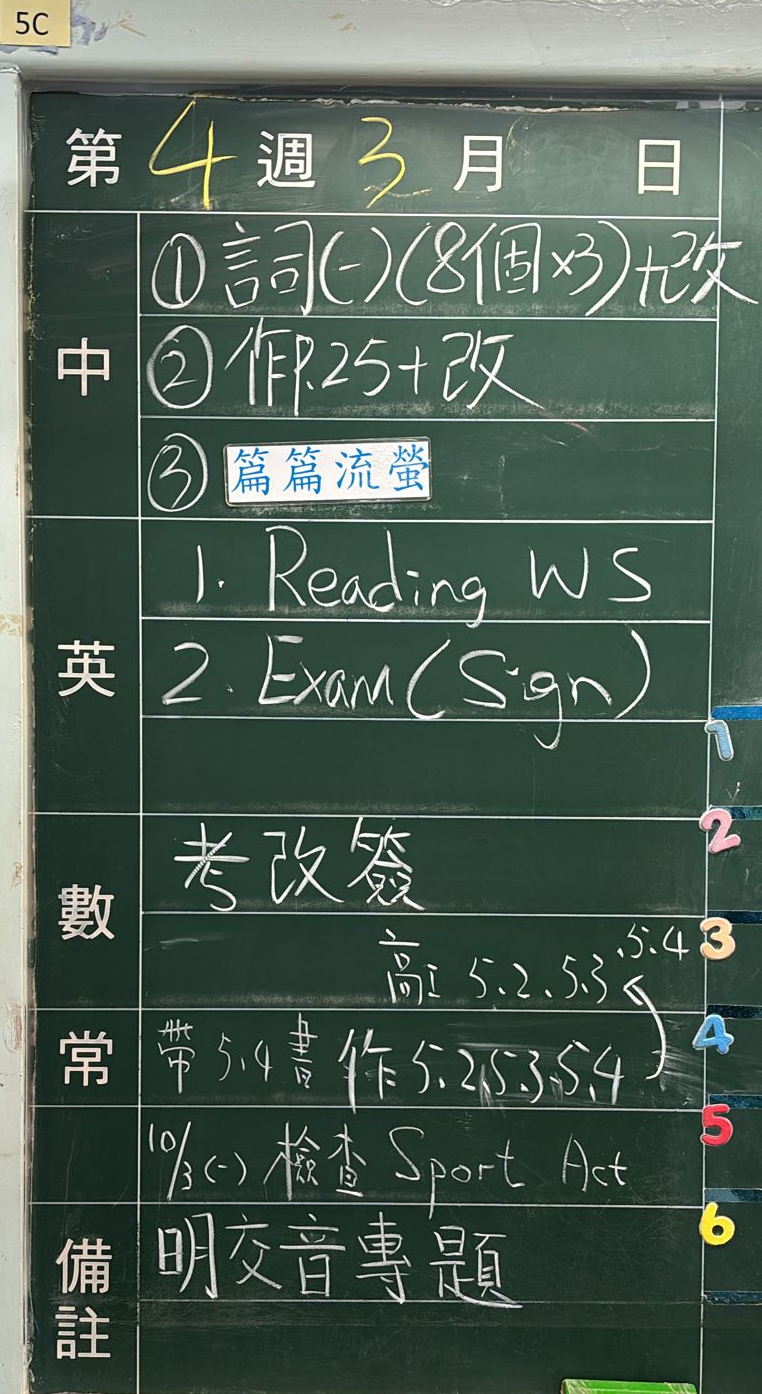 5C
第 4 週 3 月 日
中
① 詞(一)(8個×3)+改
② 作P.25+改
③ 篇篇流螢
英
1. Reading WS
2. Exam(Sign)
數
考改簽
高 5.2、5.3、5.4
常
帶 5.4 書 作 5.2,5.3,5.4
10/3(一) 檢查 Sport Act
備註
明交音專題
1
2
3
4
5
6